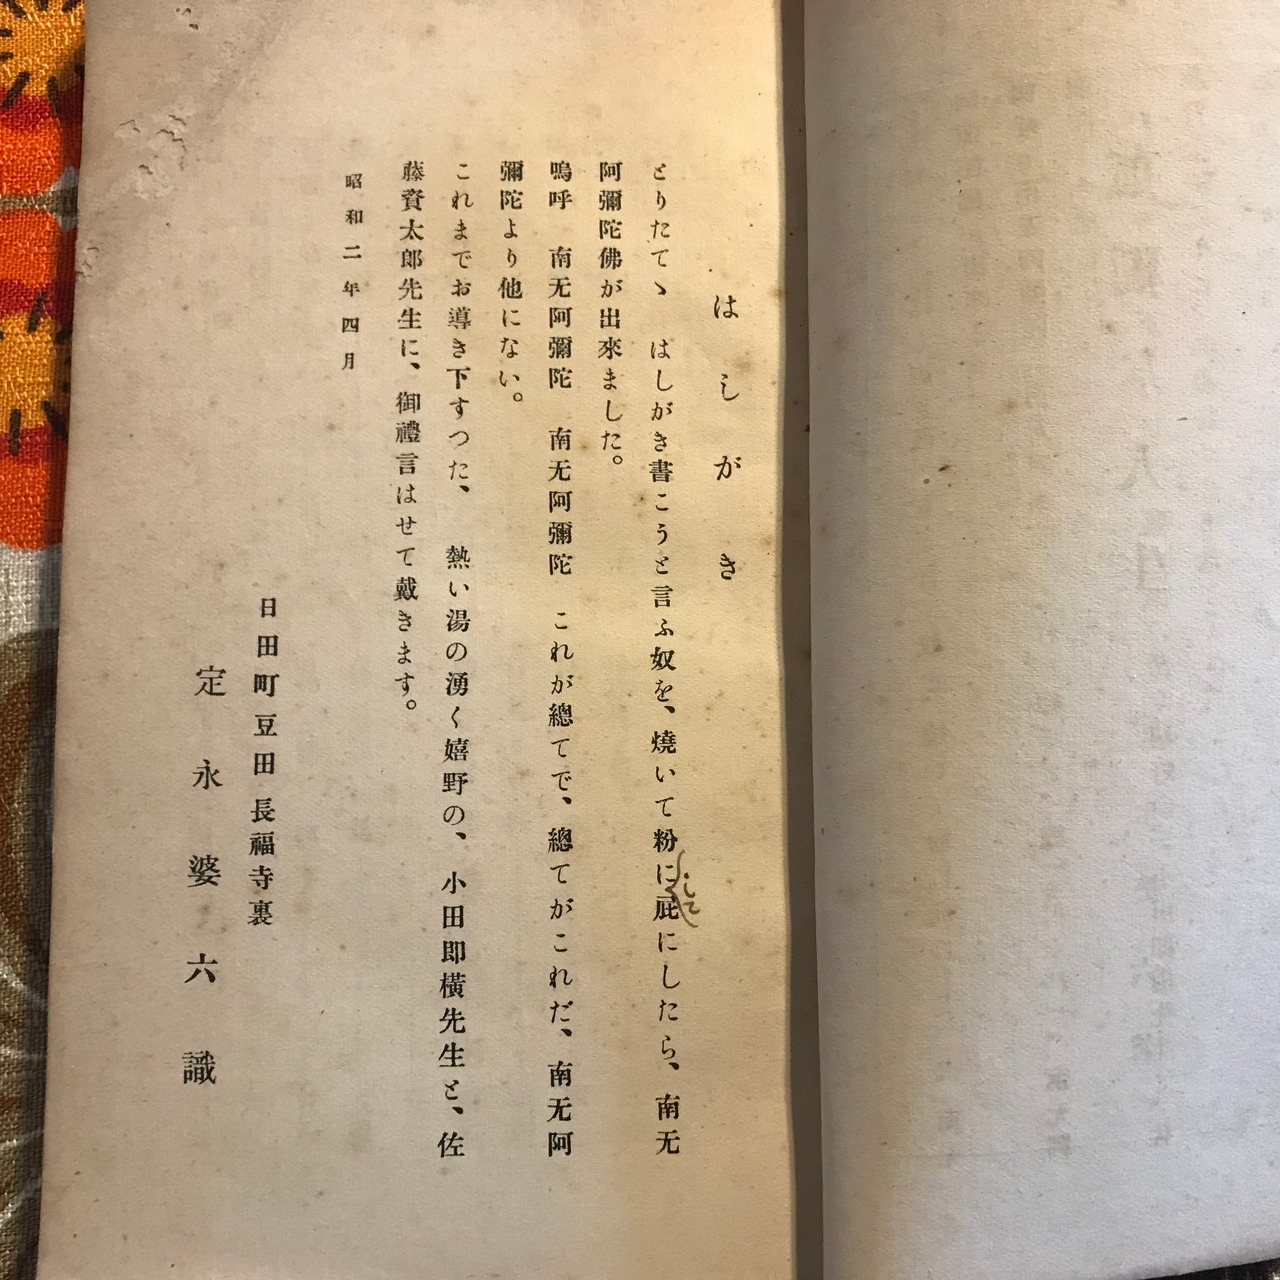 はしがき
とりたてゝ　はしがき書こうと言ふ奴を、燒いて粉に屁にしたら、南无
阿彌陀佛が出來ました。
嗚呼　南无阿彌陀　南无阿彌陀　これが總てで、總てがこれだ、南无阿
彌陀より他にない。
これまでお導き下すつた、　熱い湯の湧く嬉野の、小田即橫先生と、佐
藤資太郎先生に、御禮言はせて戴きます。
昭和二年四月
日田町豆田長福寺裏
定永婆六識